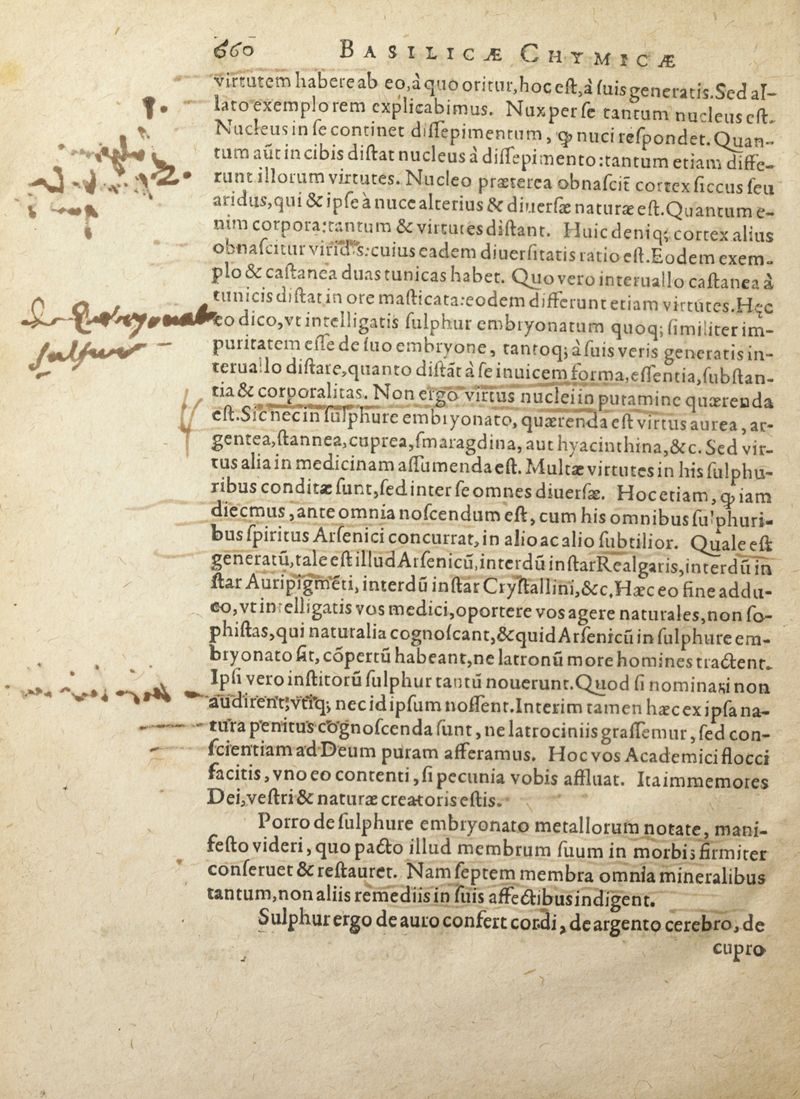 660 BASILICÆ CHYMICÆ
virtutem habere ab eo, à quo oritur, hoc eſt, à ſuis generatis. Sed al-
lato exemplo rem explicabimus. Nux per ſe tantum nucleus eſt.
Nucleus in ſe continet diſſepimentum, ꝙ nuci reſpondet. Quan-
tum aût in cibis diſtat nucleus à diſſepimento: tantum etiam diffe-
runt illorum virtutes. Nucleo præterea obnaſcit̃ cortex ſiccus ſeu
aridus, qui & ipſe à nuce alterius & diuerſæ naturæ eſt. Quantum e-
nim corpora: tantum & virtutes diſtant. Huic deniq; cortex alius
obnaſcitur viridis: cuius eadem diuerſitatis ratio eſt. Eodem exem-
plo & caſtanea duas tunicas habet. Quo vero interuallo caſtanea à
tunicis diſtat in ore maſticata: eodem differunt etiam virtutes. Hæc
eo dico, vt intelligatis ſulphur embryonatum quoq; ſimiliter im-
puritatem eſſe de ſuo embryone, tantoq; à ſuis veris generatis in-
teruallo diſtare, quanto diſtãt à ſe inuicem forma, eſſentia, ſubſtan-
tia & corporalitas. Non ergo virtus nuclei in putamine quærenda
eſt. Sic nec in ſulphure embryonato, quærenda eſt virtus aurea, ar-
gentea, ſtannea, cuprea, ſmaragdina, aut hyacinthina, &c. Sed vir-
tus alia in medicinam aſſumenda eſt. Multæ virtutes in his ſulphu-
ribus conditæ ſunt, ſed inter ſe omnes diuerſæ. Hoc etiam, ꝙ iam
diecmus, ante omnia noſcendum eſt, cum his omnibus ſulphuri-
bus ſpiritus Arſenici concurrat, in alio ac alio ſubtilior. Quale eſt
generatũ, tale eſt illud Arſenicũ, interdũ inſtar Realgaris, interdũ in
ſtar Auripigmẽti, interdũ inſtar Cryſtallini, &c. Hæc eo fine addu-
co, vt intelligatis vos medici, oportere vos agere naturales, non ſo-
phiſtas, qui naturalia cognoſcant, & quid Arſenicũ in ſulphure em-
bryonato ſit, cõpertũ habeant, ne latronũ more homines tractent.
Ipſi vero inſtitorũ ſulphur tantũ nouerunt. Quod ſi nominari non
audirent, vtiq; nec id ipſum noſſent. Interim tamen hæc ex ipſa na-
tura penitus cognoſcenda ſunt, ne latrociniis graſſemur, ſed con-
ſcientiam ad Deum puram afferamus. Hoc vos Academici flocci
facitis, vno eo contenti, ſi pecunia vobis affluat. Ita immemores
Dei, veſtri & naturæ creatoris eſtis.
Porro de ſulphure embryonato metallorum notate, mani-
feſto videri, quo pacto illud membrum ſuum in morbis firmiter
conſeruet & reſtauret. Nam ſeptem membra omnia mineralibus
tantum, non aliis remediis in ſuis affectibus indigent.
Sulphur ergo de auro confert cordi, de argento cerebro, de
cupro